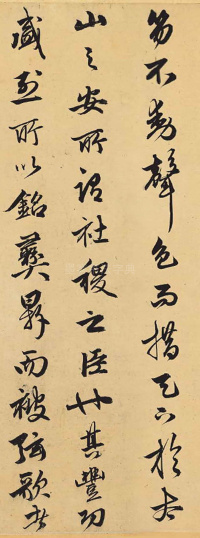 笏不動聲色而措天下於太
山之安所謂社稷之臣矣其豐功
盛烈所以銘彝鼎而被弦歌者